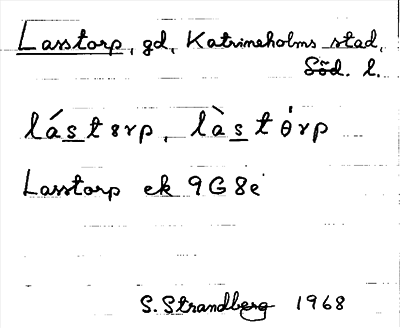 Lasstorp, gd, Katrineholms stad,
Söd. l.
lástɵrp, làstɵ̇rp
Lasstorp ek 9G8e
S. Strandberg 1968